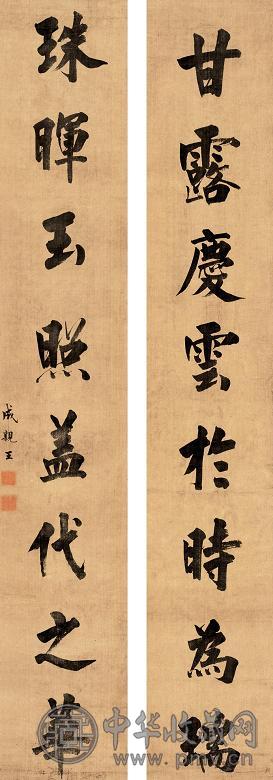 甘露慶雲於時為瑞
珠暉玉照蓋代之華
成親王
中华收藏网
www.pmw.cn